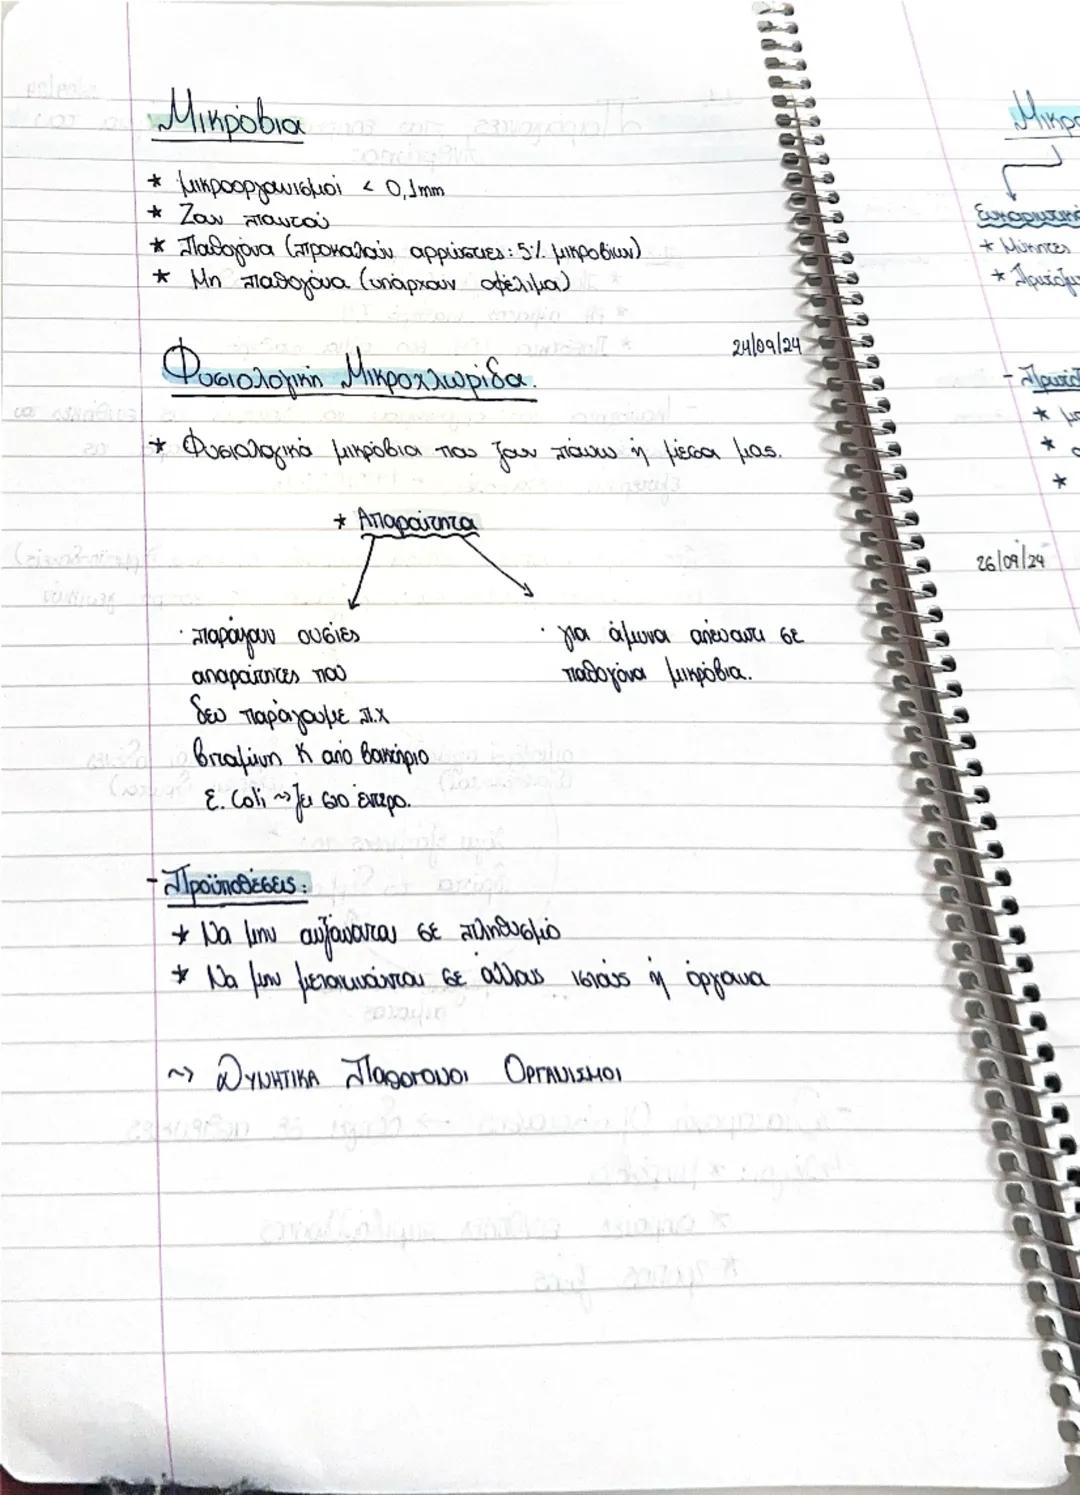 Μικρόβια
* μικροοργανισμοί < 0,1mm
* Ζουν παντού
* Παθογόνα (προκαλούν αρρώστιες: 5% μικροβίων)
* Μη παθογόνα (υπάρχουν οφέλιμα)
24/09/24
Φυσιολογική Μικροχλωρίδα.
* Φυσιολογικά μικρόβια που ζουν πάνω ή μέσα μας.
* Απαραίτητα
· παράγουν ουσίες
απαραίτητες που
δεν παράγουμε π.χ
βιταμίνη Κ από βακτήριο
E. Coli ~> ζει στο έντερο.
· για άμυνα απέναντι σε
παθογόνα μικρόβια.
- Προϋποθέσεις:
* Να μην αυξάνονται σε πληθυσμό
* Να μην μετακινούνται σε άλλους ιστούς ή όργανα
~> ΔΥΝΗΤΙΚΑ ΠΑΘΟΓΟΝΟΙ ΟΡΓΑΝΙΣΜΟΙ
* Μύκητες
26/09/24